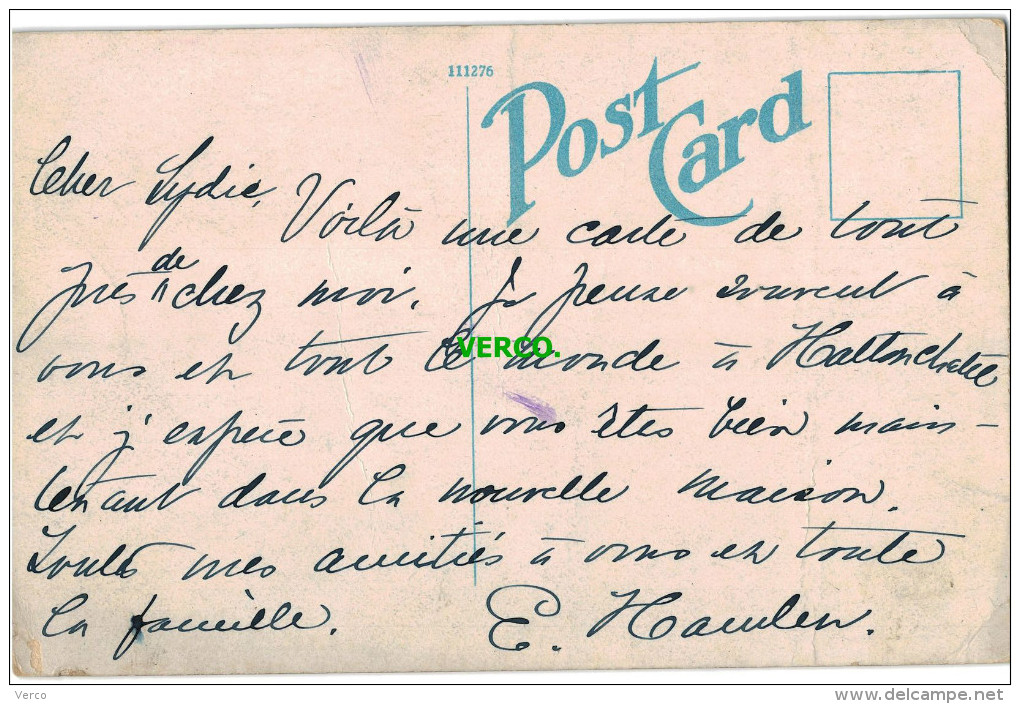 111276
Post Card
Cher Lydie,
Voilà une carte de tout
près de chez moi. Je pense souvent à
vous et tout le monde à Hattonchatel
et j'espère que vous êtes bien main-
tenant dans la nouvelle maison.
Toutes mes amitiés à vous et toute
la famille. E. Hamlen.
VERCO.
Verco
www.delcampe.net